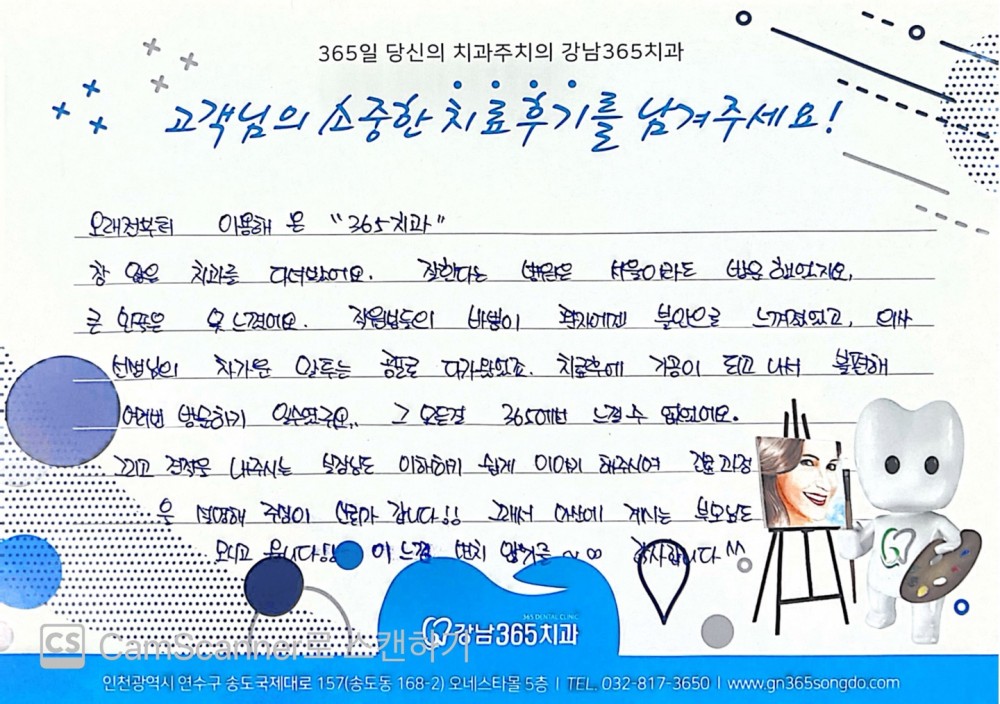 365일 당신의 치과주치의 강남365치과
고객님의 소중한 치료후기를 남겨주세요!
오래전부터 이용해 온 "365치과"
참 많은 치과를 다녀봤어요. 잘한다는 병원은 서울이라도 방문 했었지요.
큰 만족은 못 느꼈어요. 직원분들의 바쁨이 환자에겐 불안으로 느껴졌었고, 의사
선생님의 차가운 말투는 공포로 다가왔었죠. 치료후에 가공이 되고 나서 불편해
여러번 방문하기 일쑤였구요.. 그 모든걸 365에선 느낄 수 없었어요.
그리고 견적을 내주시는 실장님도 이해하기 쉽게 이야기 해주시며 치료 과정
을 설명해 주심이 신뢰가 갑니다!! 그래서 안산에 계시는 부모님도
모시고 옵니다!! 이 느낌 변치 않기를~∞ 감사합니다^^
365 DENTAL CLINIC
강남365치과
CS CamScanner로 스캔하기
인천광역시 연수구 송도국제대로 157(송도동 168-2) 오네스타몰 5층 | TEL. 032-817-3650 | www.gn365songdo.com